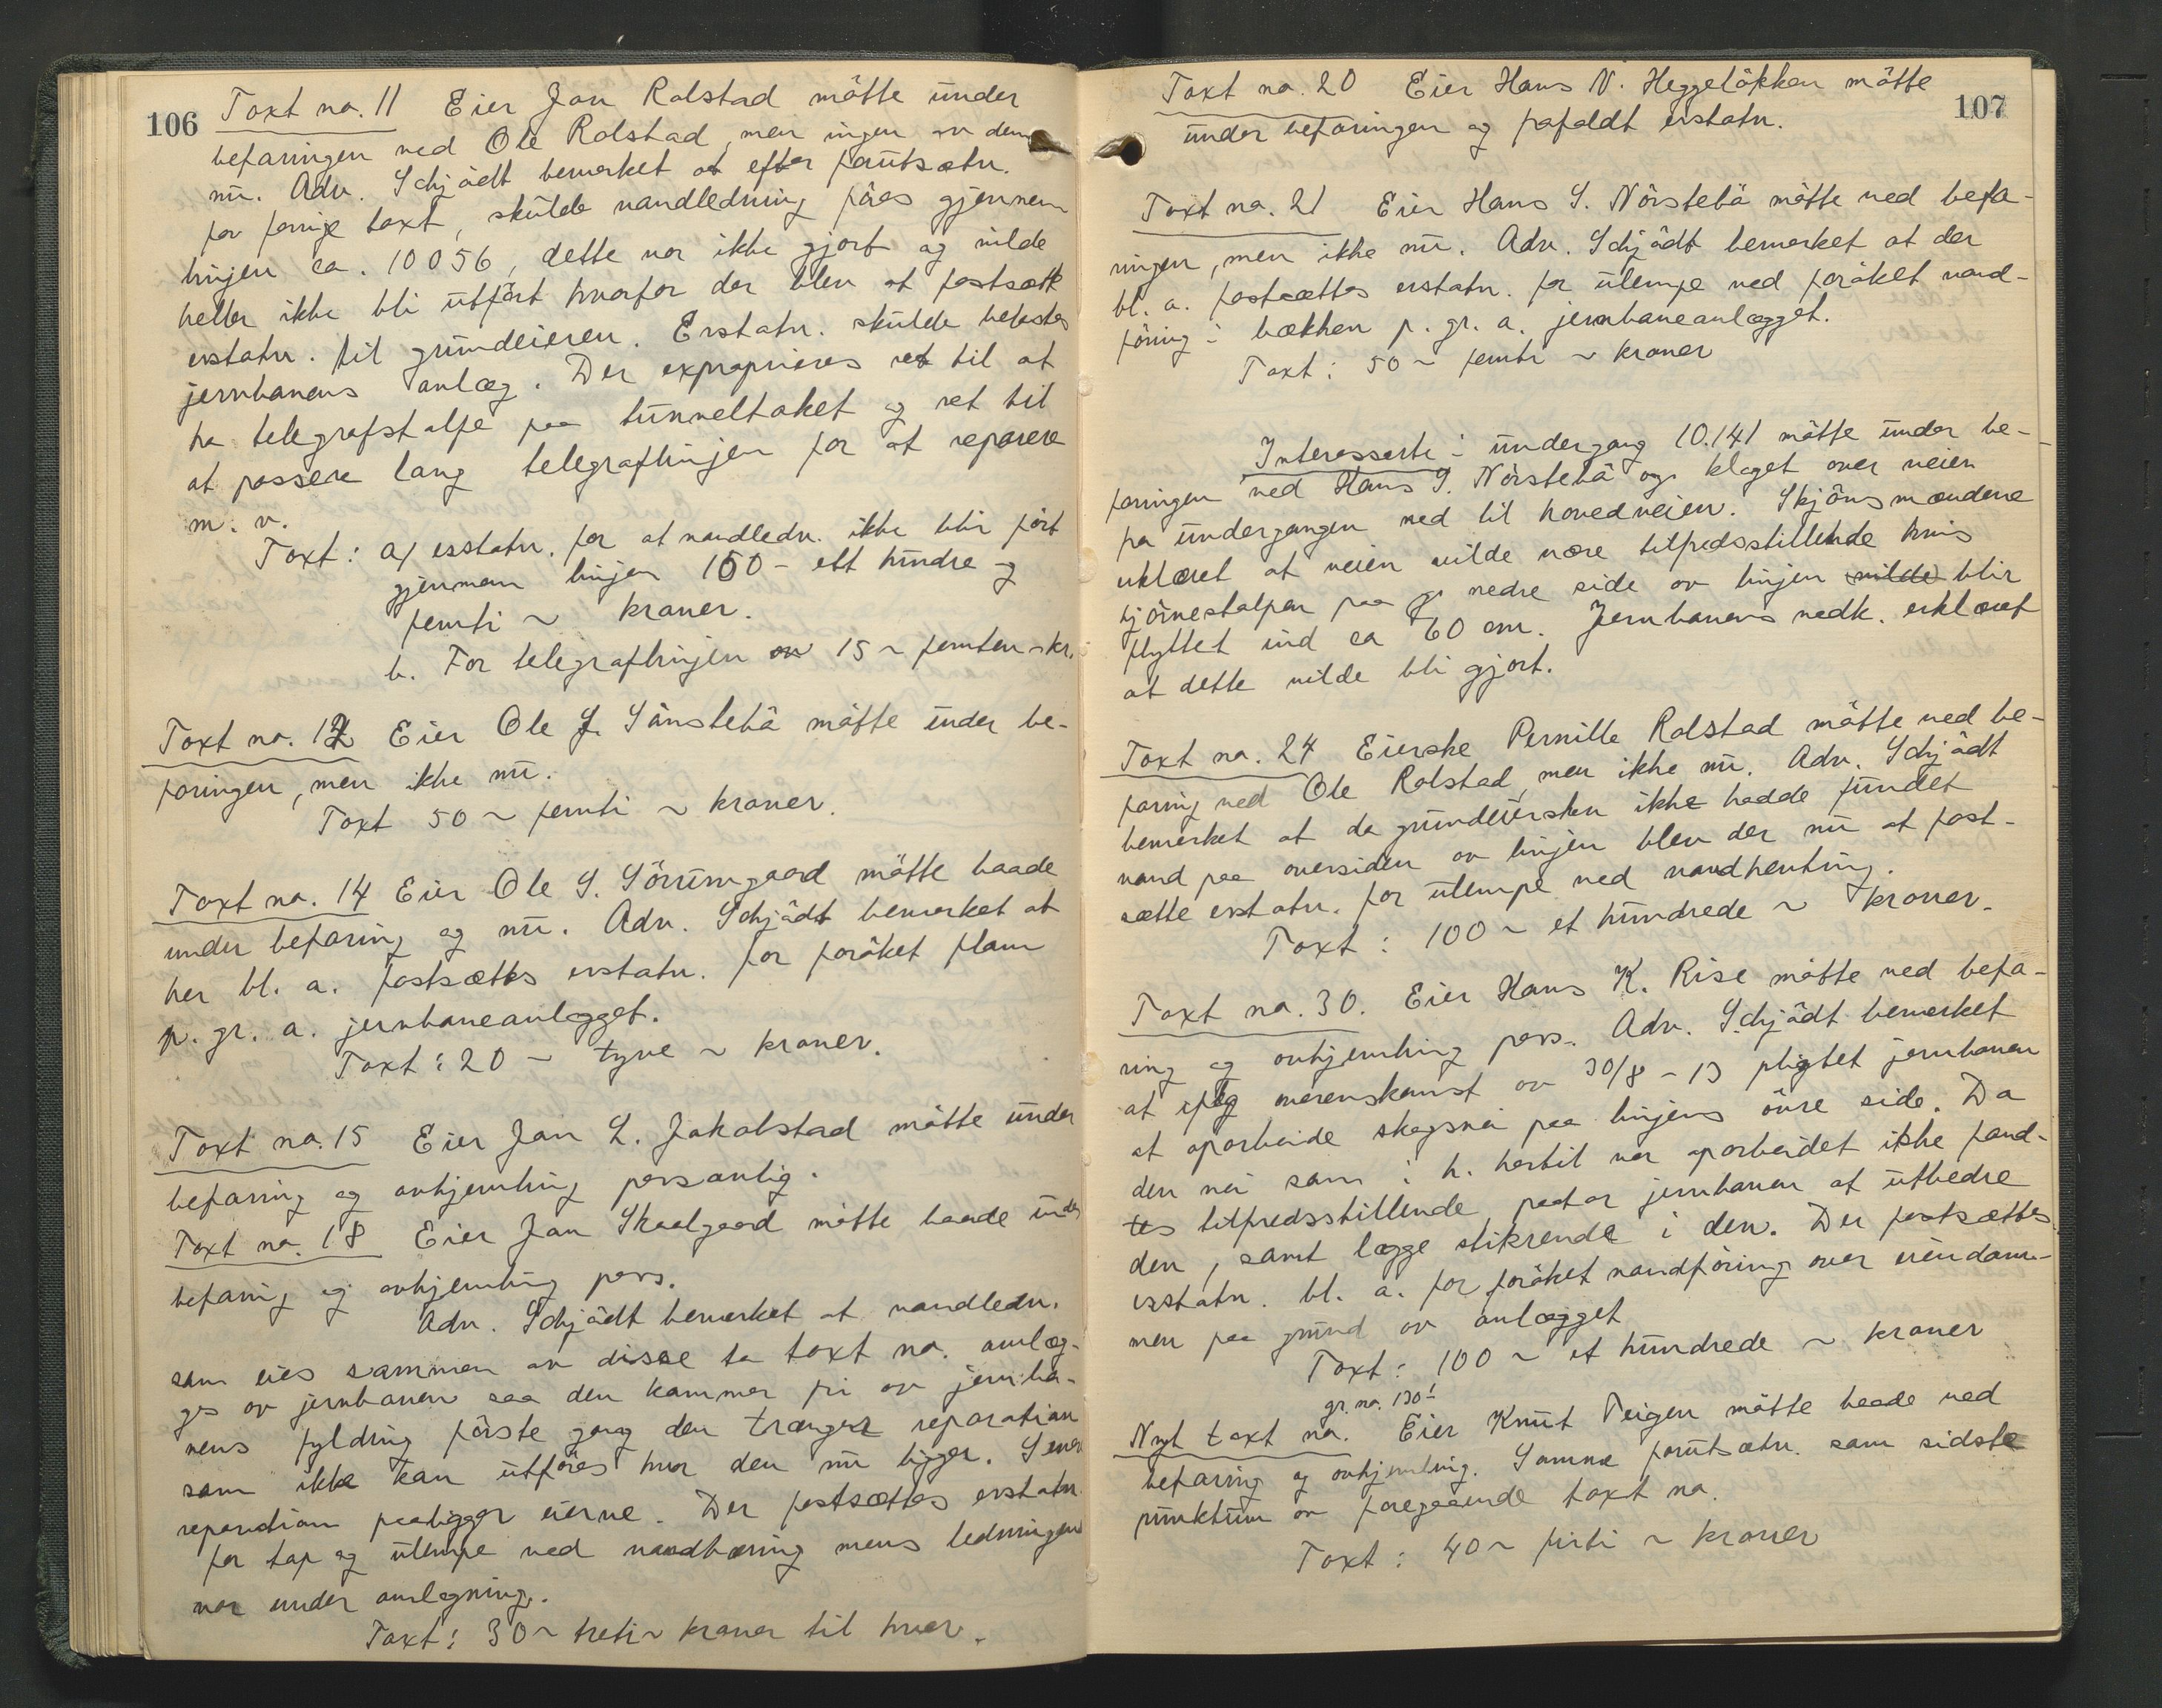 106
Taxt no. 11 Eier Jon Rolstad mötte under
befaringen ved Ole Rolstad, men ingen av dem
nu. Adv. Schjödt bemerket at efter forutsætn.
for forrige taxt, skulde vandledning föres gjennem
linjen ca. 10056, dette var ikke gjort og vilde
heller ikke bli utfört hvorfor der blev at fastsætte
erstatn. til grundeieren. Erstatn. skulde belastes
jernbanens anlæg. Der exproprieres ret til at
ha telegrafstolpe paa tunneltaket og ret til
at passere lang telegraflinjen for at reparere
m. v.
Taxt: a/ erstatn. for at vandledn. ikke blir fört
gjennem linjen 150 - ett hundre og
femti ~ kroner.
b. For telegraflinjen 15 ~ femten - kr.
Taxt no. 12 Eier Ole J. Sönstebö mötte under be-
faringen, men ikke nu.
Taxt 50 ~ femti ~ kroner.
Taxt no. 14 Eier Ole S. Sörumgaard mötte baade
under befaring og nu. Adv. Schjödt bemerket at
her bl. a. fastsættes erstatn. for foröket flom
p. gr. a. jernbaneanlægget.
Taxt: 20 ~ tyve ~ kroner.
Taxt no. 15 Eier Jon L. Jakobstad mötte under
befaring og avhjemling personlig.
Taxt no. 18 Eier Jon Skaalgaard mötte baade under
befaring og avhjemling pers.
Adv. Schjödt bemerket at vandledn.
som eies sammen av disse to taxt no. omlæg-
ges av jernbanen saa den kommer fri av jernba-
nens fylding förste gang den trænger reparation
som ikke kan utföres hvor den nu ligger. Senere
reparation paaligger eierne. Der fastsættes erstatn.
for tap og ulempe ved vandbæring mens ledningen
var under omlægning.
Taxt: 30 ~ treti ~ kroner til hver.
107
Taxt no. 20 Eier Hans N. Heggelökken mötte
under befaringen og frafaldt erstatn.
Taxt no. 21 Eier Hans S. Nörstebö mötte ved befa-
ringen, men ikke nu. Adv. Schjödt bemerket at der
bl. a. fastsættes erstatn. for ulempe ved foröket vand-
föring i bækken p. gr. a. jernbaneanlægget.
Taxt: 50 ~ femti ~ kroner
Interesserte i undergang 10.141 mötte under be-
faringen ved Hans S. Nörstebö og klaget over veien
fra undergangen ned til hovedveien. Skjönsmændene
erklæret at veien vilde være tilfredsstillende hvis
hjörnestolpen paa nedre side av linjen vilde blir
flyttet ind ca 60 cm. Jernbanens vedk. erklæret
at dette vilde bli gjort.
Taxt no. 24 Eierske Pernille Rolstad mötte ved be-
faring ved Ole Rolstad, men ikke nu. Adv. Schjödt
bemerket at da grundeiersken ikke hadde fundet
vand paa oversiden av linjen blev der nu at fast-
sætte erstatn. for ulempe ved vandhenting.
Taxt: 100 ~ et hundrede ~ kroner.
Taxt no. 30. Eier Hans K. Rise mötte ved befa-
ring og avhjemling pers. Adv. Schjödt bemerket
at iflg overenskomst av 30/8 - 13 pligtet jernbanen
at oparbeide skogsvei paa linjens övre side. Da
den vei som i h. hertil var oparbeidet ikke fand-
tes tilfredsstillende, paatar jernbanen at utbedre
den, samt lægge stikrende i den. Der fastsættes
erstatn. bl. a. for foröket vandföring over eiendom-
men paa grund av anlægget
Taxt: 100 ~ et hundrede ~ kroner
gr. no. 130!
Nyt taxt no. Eier Knut Teigen mötte baade ved
befaring og avhjemling. Samme forutsætn. som sidste
punktum av foregaaende taxt no.
Taxt: 40 ~ firti ~ kroner